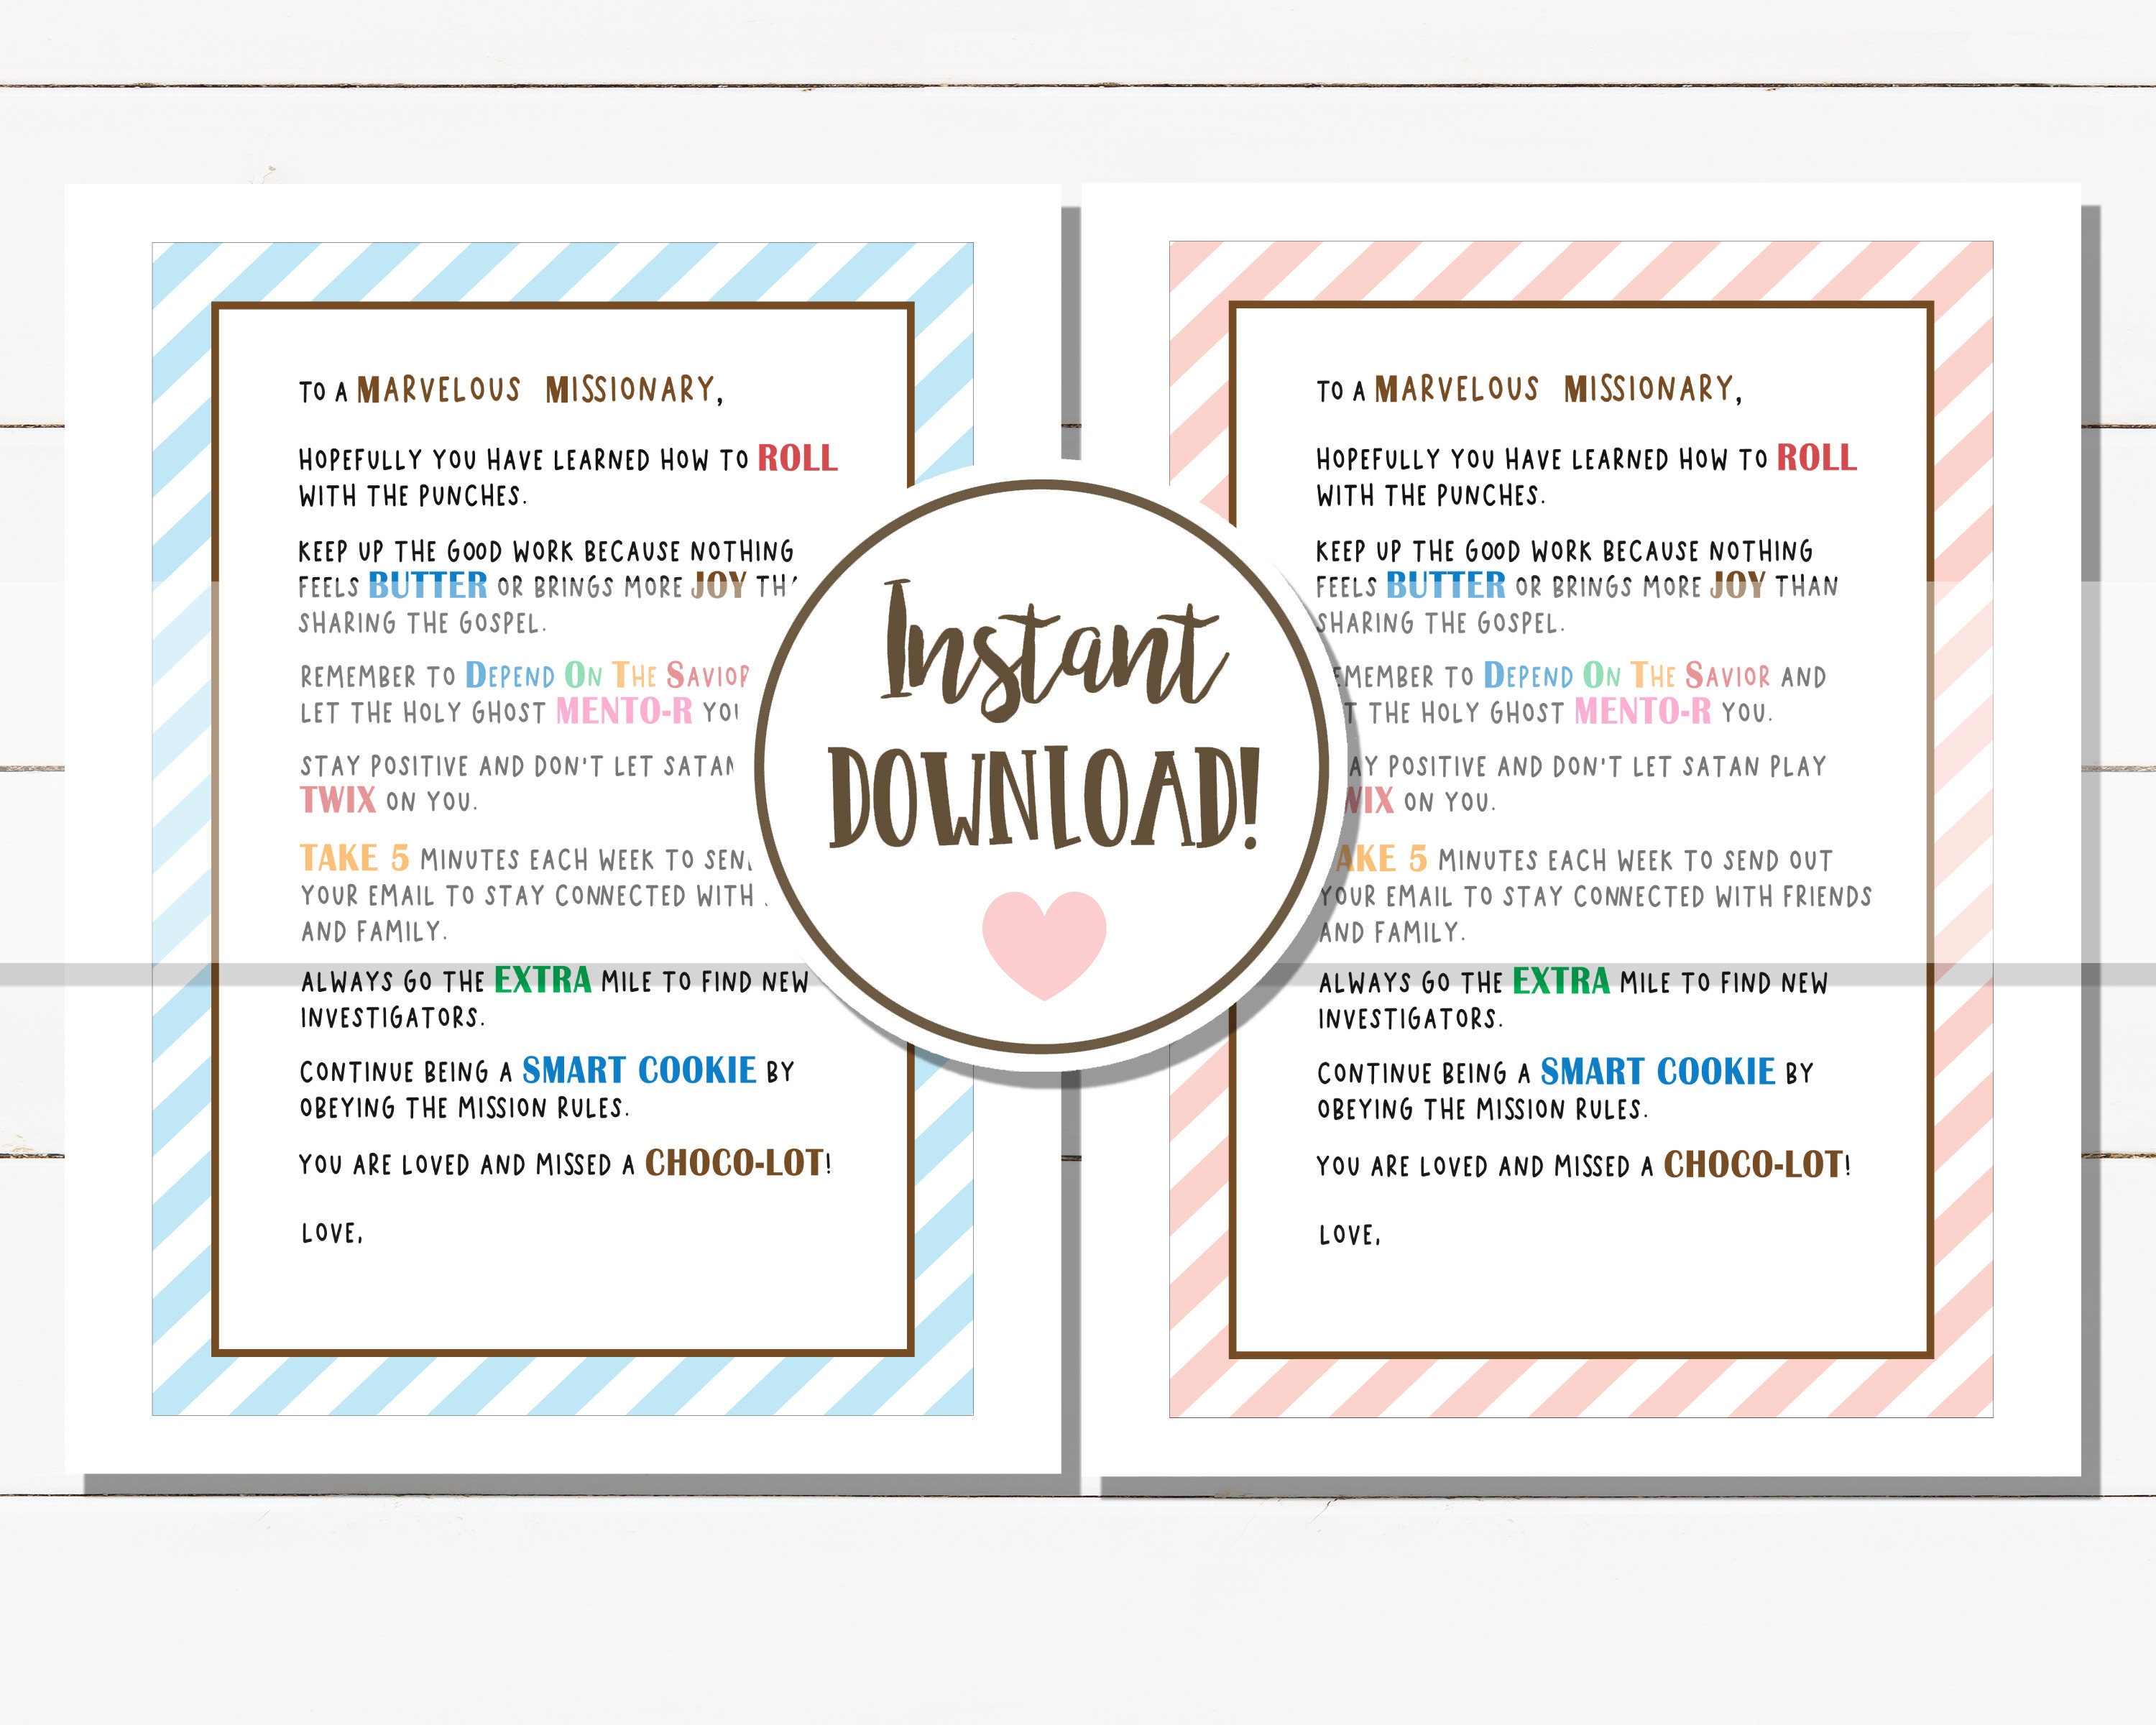 TO A MARVELOUS MISSIONARY,
HOPEFULLY YOU HAVE LEARNED HOW TO ROLL
WITH THE PUNCHES.
KEEP UP THE GOOD WORK BECAUSE NOTHING
FEELS BUTTER OR BRINGS MORE JOY
SHARING THE GOSPEL.
REMEMBER TO DEPEND ON THE SAVIOR
LET THE HOLY GHOST MENTO-R YOU
STAY POSITIVE AND DON'T LET SATAN
TWIX ON YOU.
TAKE 5 MINUTES EACH WEEK TO SEND
YOUR EMAIL TO STAY CONNECTED WITH
AND FAMILY.
ALWAYS GO THE EXTRA MILE TO FIND NEW
INVESTIGATORS.
CONTINUE BEING A SMART COOKIE BY
OBEYING THE MISSION RULES.
YOU ARE LOVED AND MISSED A CHOCO-LOT!
LOVE,
Instant
DOWNLOAD!
TO A MARVELOUS MISSIONARY,
HOPEFULLY YOU HAVE LEARNED HOW TO ROLL
WITH THE PUNCHES.
KEEP UP THE GOOD WORK BECAUSE NOTHING
FEELS BUTTER OR BRINGS MORE JOY THAN
SHARING THE GOSPEL.
REMEMBER TO DEPEND ON THE SAVIOR AND
THE HOLY GHOST MENTO-R YOU.
POSITIVE AND DON'T LET SATAN PLAY
TWIX ON YOU.
TAKE 5 MINUTES EACH WEEK TO SEND OUT
YOUR EMAIL TO STAY CONNECTED WITH FRIENDS
AND FAMILY.
ALWAYS GO THE EXTRA MILE TO FIND NEW
INVESTIGATORS.
CONTINUE BEING A SMART COOKIE BY
OBEYING THE MISSION RULES.
YOU ARE LOVED AND MISSED A CHOCO-LOT!
LOVE,